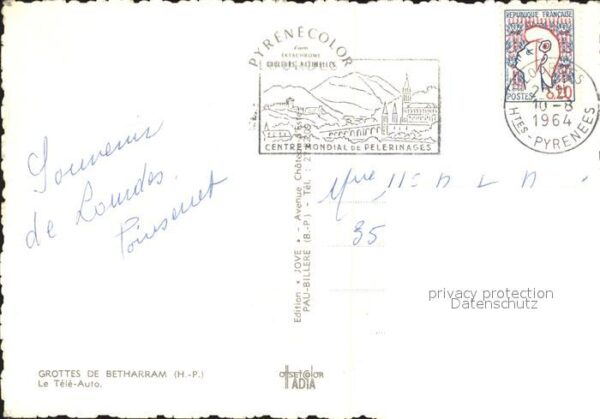 PYRÉNÉCOLOR
EKTACHROME
COULEURS ACTUELLES
CENTRE MONDIAL DE PELERINAGES
REPUBLIQUE FRANÇAISE
POSTES 0,20
10-8
1964
HTES-PYRENEES
Souvenir
de Lourdes.
35
Edition "JOVE" - Avenue
PAU-BILLERE (B.-P.) - Tél. :
privacy protection
Datenschutz
GROTTES DE BETHARRAM (H.-P.)
Le Télé-Auto.
offsetcolor
iADIA